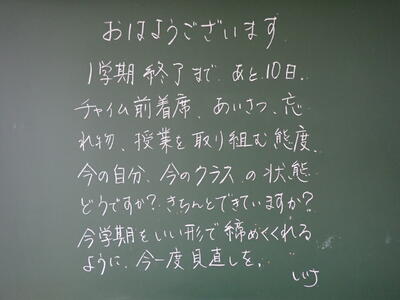 おはようございます
1学期終了まで、あと、10日、
チャイム前着席、あいさつ、忘
れ物、授業を取り組む態度、
今の自分、今のクラスの状態
どうですか?きちんとできていますか?
今学期をいい形で締めくくれる
ように、今一度見直しを。